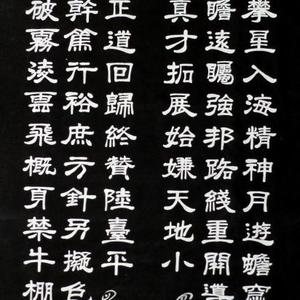 攀星入海精神月遊蟾
瞻遠矚強邦路綫重開導
真才拓展始嫌天地小
正道回歸終贊陸臺平
幹篤行裕庶方針另擬
破霧淩雲飛概頁禁牛棚